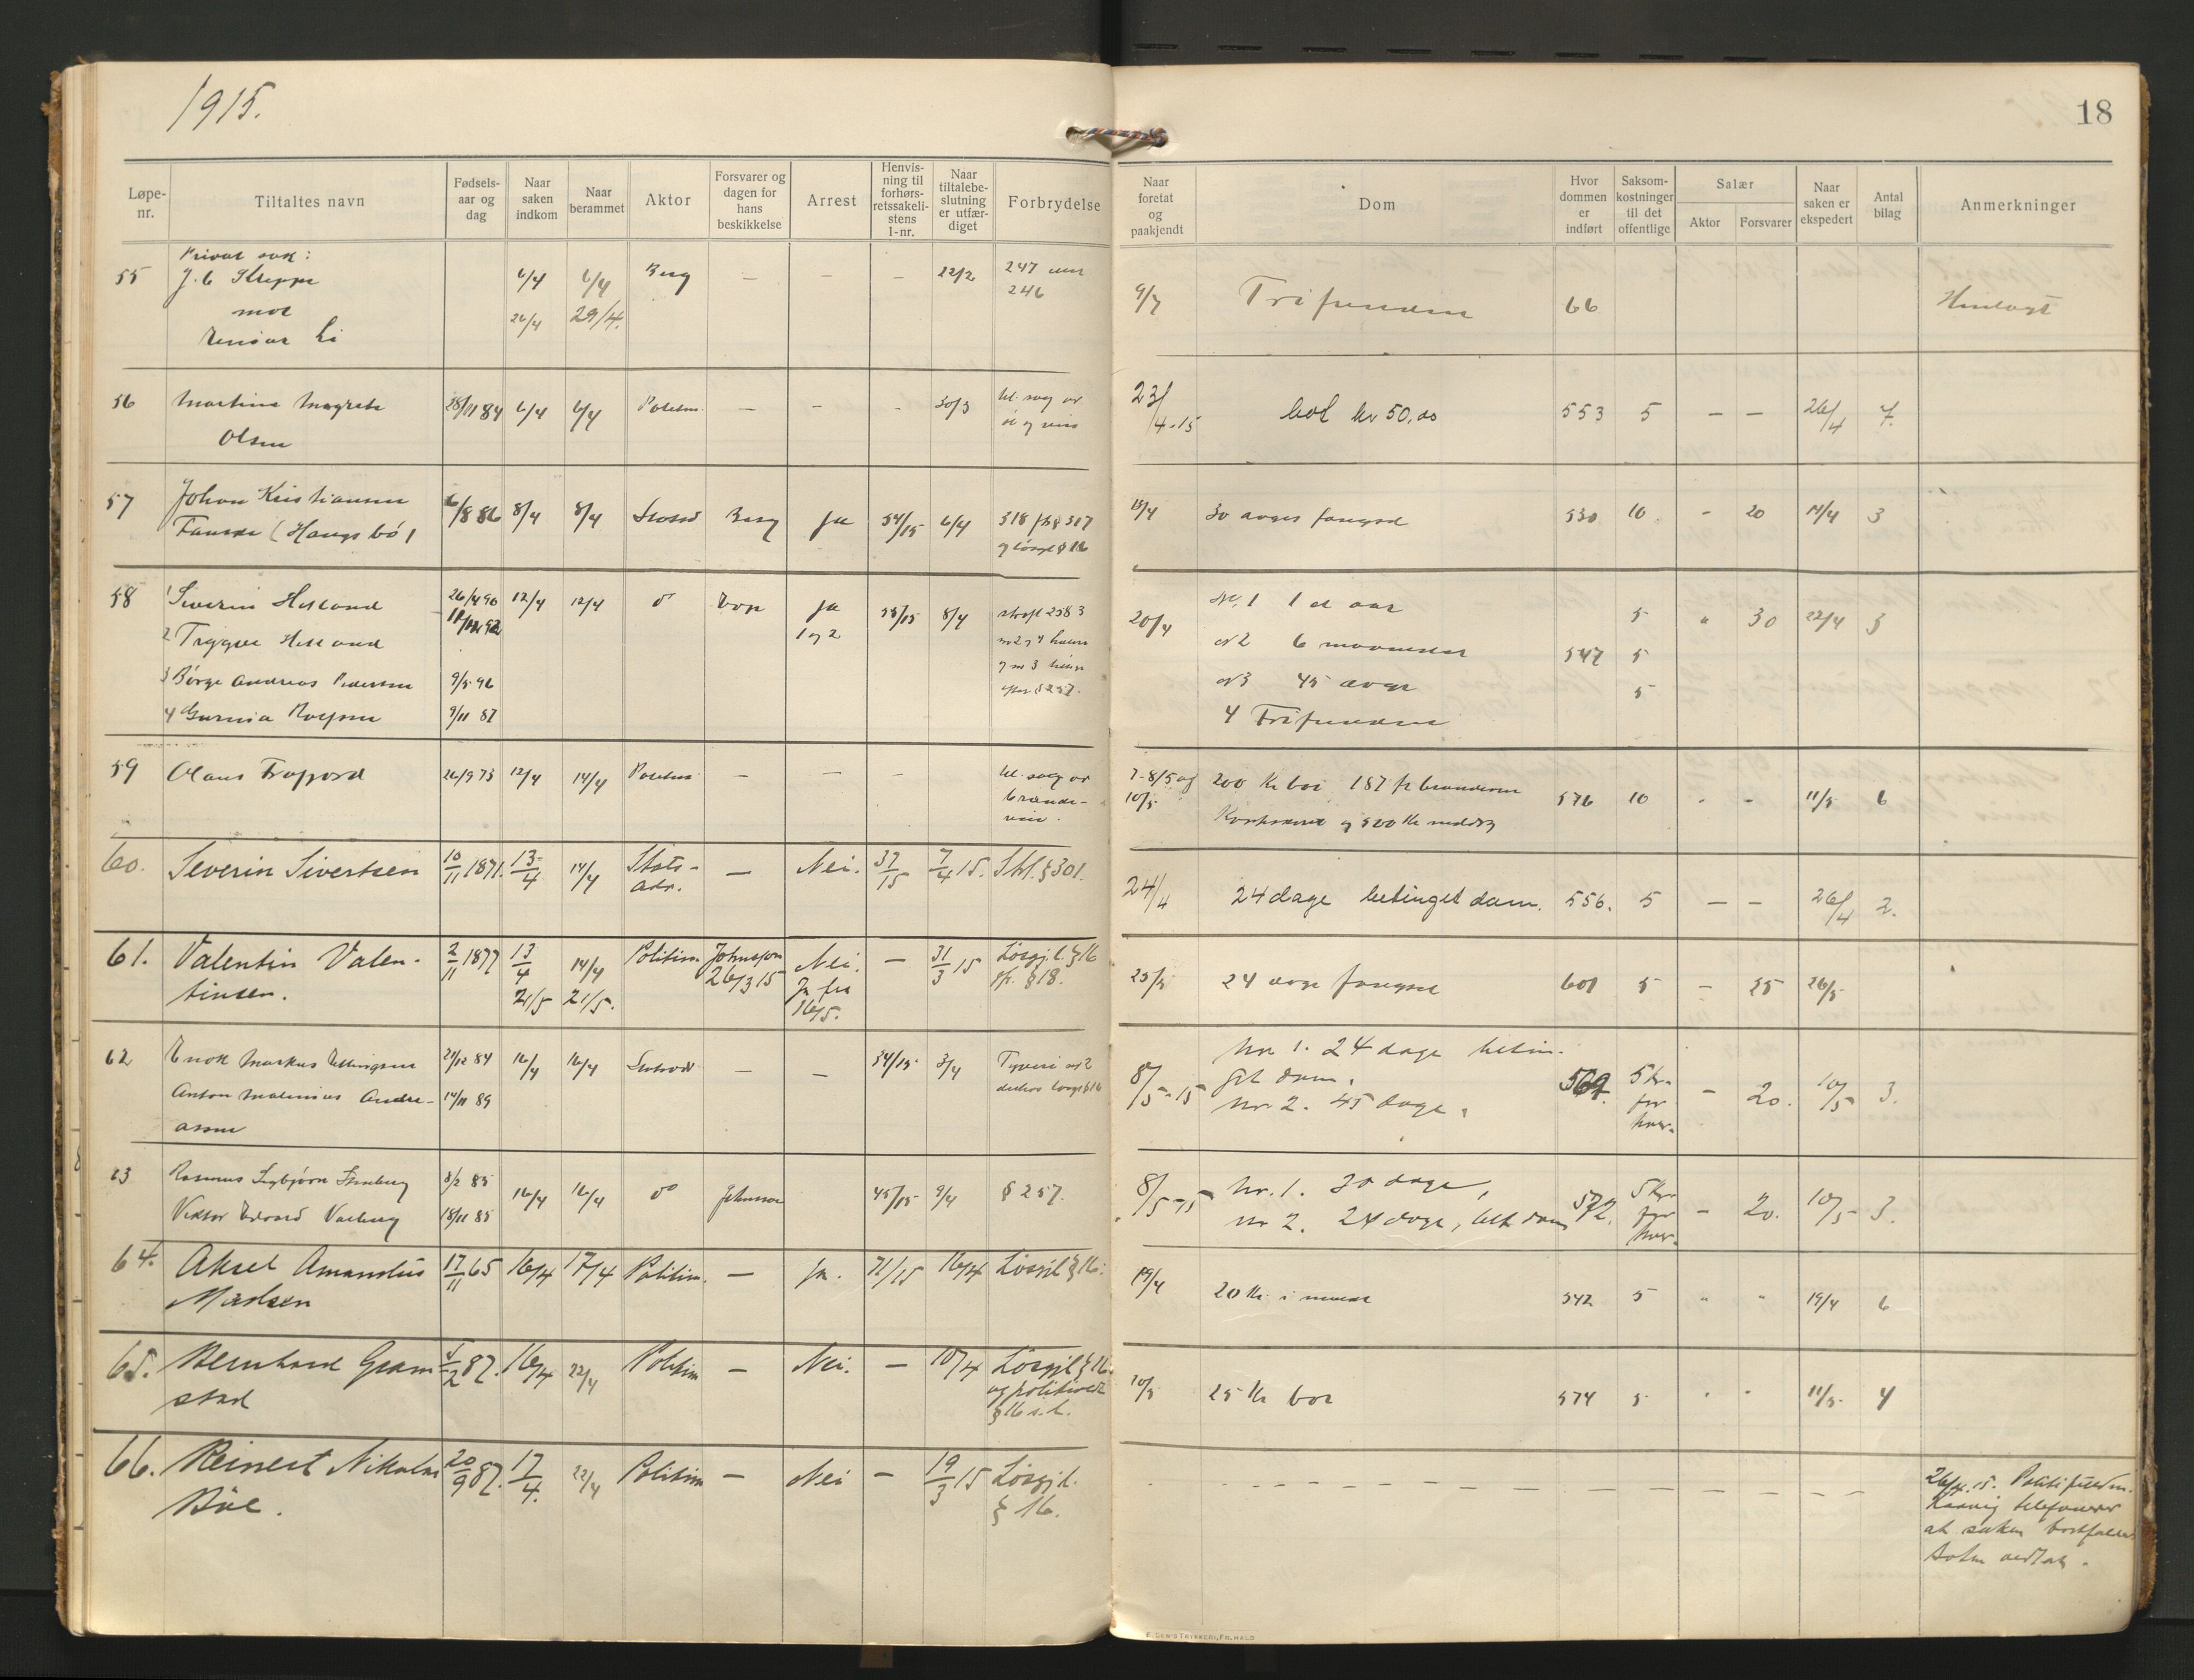 1915.
18
Løpe-nr.
Tiltaltes navn
Fødsels-aar og dag
Naar saken indkom
Naar berammet
Aktor
Forsvarer og dagen for hans beskikkelse
Arrest
Henvis-ning til forhørs-retssakeli-stens l-nr.
Naar tiltalebe-slutning er utfær-diget
Forbrydelse
Naar foretat og paakjendt
Dom
Hvor dommen er indført
Saksom-kostninger til det offentlige
Salær
Aktor
Forsvarer
Naar saken er ekspedert
Antal bilag
Anmerkninger
Privat sak:
55 J. C 6/4 6/4 Berg — — — 22/2 247
mot 26/4 29/4. 246
9/7 Frifunden 66 Henlagt
56 Martine Magrete 28/11 84 6/4 6/4 Politim. — — - 30/3 ul. salg av
Olsen øl og vin
23/4-15 bot kr 50,00 553 5 — — 26/4 7.
57 Johan Kristiansen 6/8 86 8/4 8/4 Berg Ja 34/15 6/4 318 jfr § 317
Fauske (Haugsbø) og løsgl § 16
15/4 30 dages fængsel 530 10. - 20 3
58 1 Severin Helland 26/4 90 12/4 12/4 do Ja 35/15 8/4 strfl 258 3
2 Trygve Helland 1 og 2
3 Børge Andreas Pedersen 9/5 96
4 9/11 87 § 257.
20/4 Nr. 1 1 et aar 5 " 30 22/4 3
nr 2 6 maaneder 547 5
nr 3 45 dage 5
4 Frifunden
59 Olaus Frafjord 26/9 73 12/4 14/4 Politim — — — ul. salg av
brænde-
vin.
7-8/5 og 200 Kr bot 187 576 10 - - 11/5 6
10/5 og 500 Kr
60. Severin Sivertsen 10/11 1871. 13/4 14/4 Stats-adv. — Nei. 37/15 7/4 15. Stl. § 301.
24/4 24 dage betinget dom. 556. 5 — — 26/4 2.
61. Valentin Valen- 2/11 1877 13/4 14/4 Politim Johnsson Nei. — 31/3 15 Løsgjl. § 16
tinsen. 21/5 21/5. 26/3 15 Ja fra 16/5. jfr. § 18.
25/5 24 dage fængsel 601 5 — 25 26/5
62 Enok Markus Ellingsen 29/12 84 16/4 16/4 Statsadv — — 34/15 3/4 Tyveri nr 2
Anton Malinius Andre- 14/11 89 desuten løsgl § 16
asen
8/5-15 Nr 1. 24 dage betin- 569. 5 kr. - 20. 10/5 3.
get dom. for
nr 2. 45 dage. hver.
63 Rasmus 8/2 85 16/4 16/4 do Johnsson 45/15 9/4 § 257.
Viktor Edvard 18/11 85
8/5-15 Nr. 1. 30 dage, 572. 5 kr. - 20. 10/5 3.
nr 2. 24 dage, bet dom for
hver.
64. Aksel Amandus 17/11 65 16/4 17/4 Politim. — Ja. 71/15 16/4 Løsgjl § 16.
Madsen
19/4 20 Kr. i mulkt 542 5 " " 19/4 6
65. Bernhard Gram 5/2 87. 16/4 22/4 Politim — Nei. — 10/4 Løsgjl § 16.
stad og politived.
§ 16
10/5 25 Kr bot 574 5 " " 11/5 4
66. Reinert Nikolai 20/9 87. 17/4. 22/4 Politim — Nei — 19/3 15 Løsgjl.
Bøe. § 16.
26/4.15. Politifuldm.
telefonerer
at saken bortfalder
Boten vedtat.
E. SEM'S TRYKKERI, FR.HALD